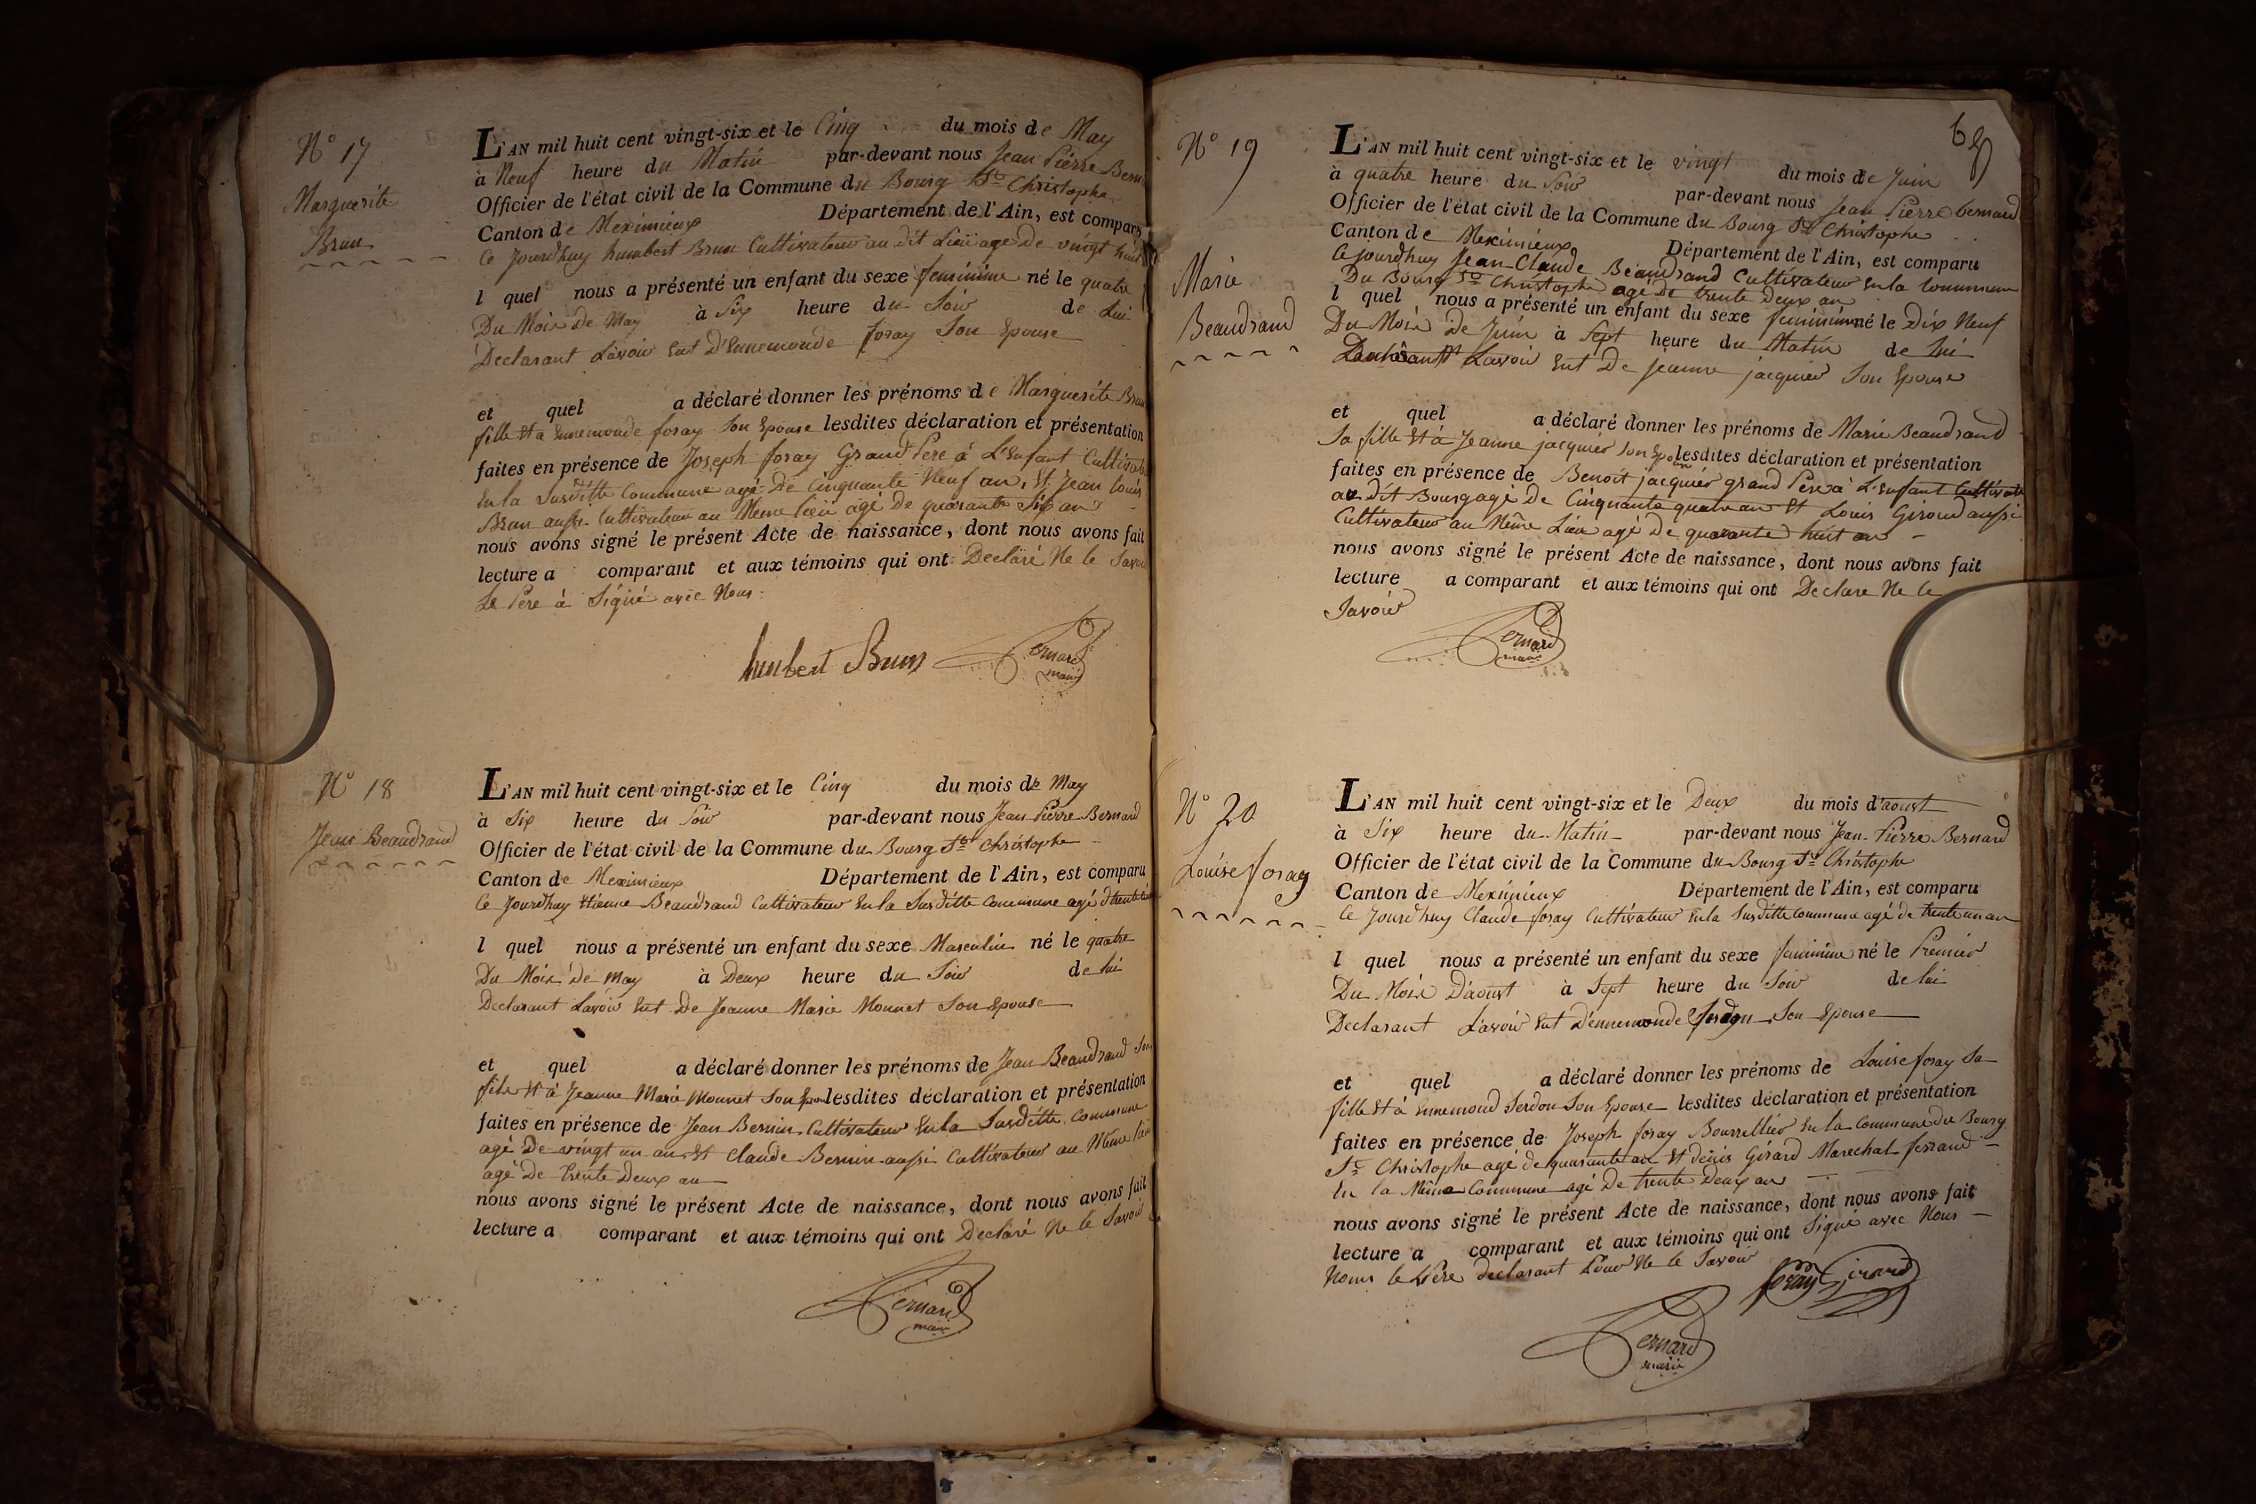 N° 17
Marguerite
Brun
L'AN mil huit cent vingt-six et le Cinq du mois de May
à Neuf heure du Matin par-devant nous Jean Pierre Bern
Officier de l'état civil de la Commune du Bourg St Christophe
Canton de Meximieux Département de l'Ain, est comparu
Ce Jourdhuy humbert Brun Cultivateur au dit Lieu age de vingt huit
l quel nous a présenté un enfant du sexe feminine né le quatre
Du Mois de May à Six heure du Soir de Lui
Declarant Lavoir Eut D'Ennemonde foray Son Epouse
et quel a déclaré donner les prénoms de Marguerite Brun
fille Et a Ennemonde foray Son Epouse lesdites déclaration et présentation
faites en présence de Joseph foray Grand Pere à L'Enfant Cultivat
En la Susditte Commune agé De Cinquante Neuf an, Et Jean Louis
Brun aussi Cultivateur au Même Lieu agé De quarante Six an
nous avons signé le présent Acte de naissance, dont nous avons fait
lecture a comparant et aux témoins qui ont Declaré Ne le Savoir
Le Pere à Signé avec Nous
humbert Brun Bernard
maire
N° 18
Jean Beaudrand
L'AN mil huit cent vingt-six et le Cinq du mois de May
à Six heure du Soir par-devant nous Jean Pierre Bernard
Officier de l'état civil de la Commune du Bourg St Christophe
Canton de Meximieux Département de l'Ain, est comparu
Ce Jourdhuy Etienne Beaudrand Cultivateur En la Susditte Commune agé
l quel nous a présenté un enfant du sexe Masculin né le quatre
Du Mois de May à Deux heure du Soir de lui
Declarant Lavoir Eut De Jeanne Marie Monnet Son Epouse
et quel a déclaré donner les prénoms de Jean Beaudrand Son
fils Et à Jeanne Marie Monnet Son lesdites déclaration et présentation
faites en présence de Jean Bernin Cultivateur En la Susditte Commune
agé De vingt un an Et Claude Bernin aussi Cultivateur au Même Lieu
agé De trente Deux an
nous avons signé le présent Acte de naissance, dont nous avons fait
lecture a comparant et aux témoins qui ont Declaré Ne le Savoir
Bernard
maire
N° 19
Marie
Beaudrand
L'AN mil huit cent vingt-six et le vingt du mois de Juin
à quatre heure du Soir par-devant nous Jean Pierre bernard
Officier de l'état civil de la Commune du Bourg St Christophe
Canton de Meximieux Département de l'Ain, est comparu
Ce jourdhuy Jean-Claude Beaudrand Cultivateur En la Commune
Du Bourg St Christophe agé De trente Deux an
l quel nous a présenté un enfant du sexe feminine né le Dix Neuf
Du Mois De Juin à Sept heure du Matin de Lui
Declarant Lavoir Eut De Jeanne jacquier Son Epouse
et quel a déclaré donner les prénoms de Marie Beaudrand
Sa fille Et à Jeanne jacquier Son Epouse lesdites déclaration et présentation
faites en présence de Benoit jacquier grand Pere à L'Enfant Cultivat
au dit Bourg agé De Cinquante quatre an Et Louis Giroud aussi
Cultivateur au Même Lieu agé De quarante huit an
nous avons signé le présent Acte de naissance, dont nous avons fait
lecture a comparant et aux témoins qui ont Declare Ne le
Savoir
Bernard
maire
N° 20
Louise foray
L'AN mil huit cent vingt-six et le Deux du mois d'aoust
à Six heure du Matin par-devant nous Jean-Pierre Bernard
Officier de l'état civil de la Commune du Bourg St Christophe
Canton de Meximieux Département de l'Ain, est comparu
Ce Jourdhuy Claude foray Cultivateur En la Susditte Commune agé de trente un an
l quel nous a présenté un enfant du sexe feminine né le Premier
Du Mois D'aoust à Sept heure du Soir de lui
Declarant Lavoir Eut D'ennemonde Serdon Son Epouse
et quel a déclaré donner les prénoms de Louise foray Sa
fille Et à Ennemond Serdon Son Epouse lesdites déclaration et présentation
faites en présence de Joseph foray Bourrellier En la Commune du Bourg
St Christophe agé de quarante an Et denis Girard Marechal ferrand
En la Même Commune agé De trente Deux an
nous avons signé le présent Acte de naissance, dont nous avons fait
lecture a comparant et aux témoins qui ont Signé avec Nous
Nous le Père declarant Ne le Savoir
foray Girard
Bernard
maire